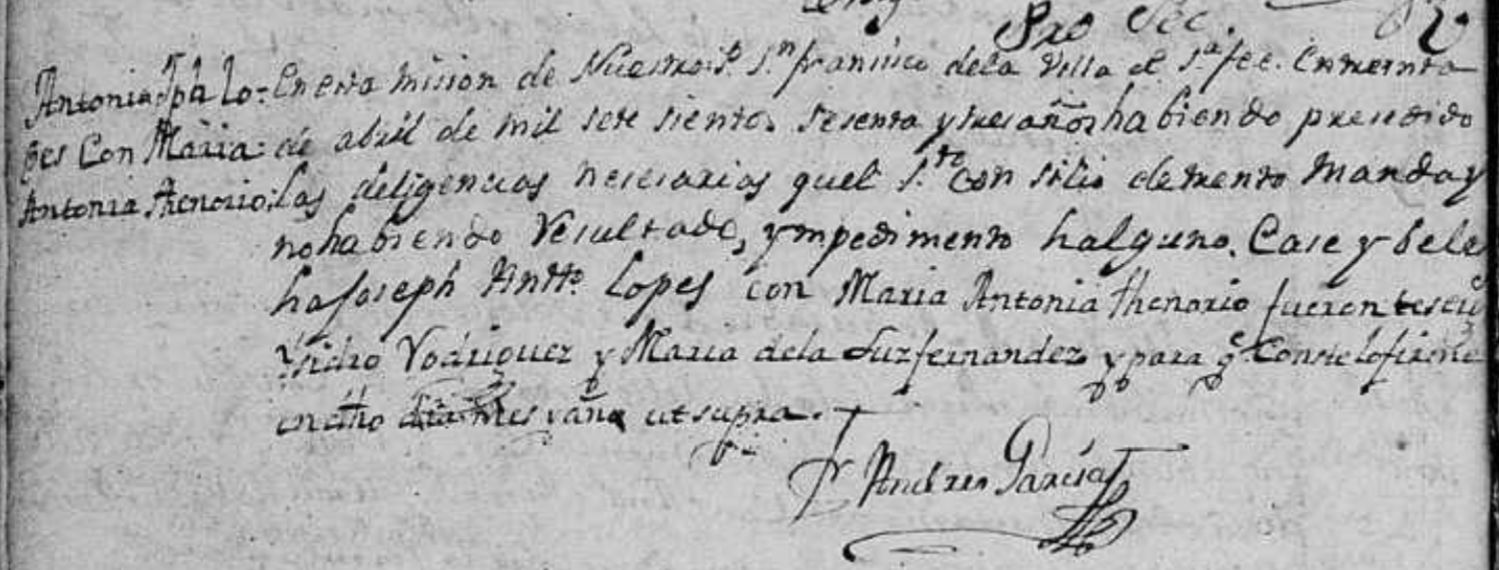 Pro Sec.
Antonio Jph Lo=
pes Con Maria:
Antonia thenorio:
En esta mision de Nuestro P. S.n francisco dela Villa de S.ta fee. En treinta
de abril de mil sete sientos sesenta y tres años habiendo presedido
las deligencias nesesarias quel S.to Con silio de trento manda y
no habiendo Resultado, ympedimento halguno. Case y bele
ha Joseph Antto. Lopes con Maria Antonia thenorio fueron testig
Ysidro Rodriguez y Maria dela Luz fernandez y para q.e Conste lo firme
en dho dia mes y año ut supra.
Fr Andres Garcia